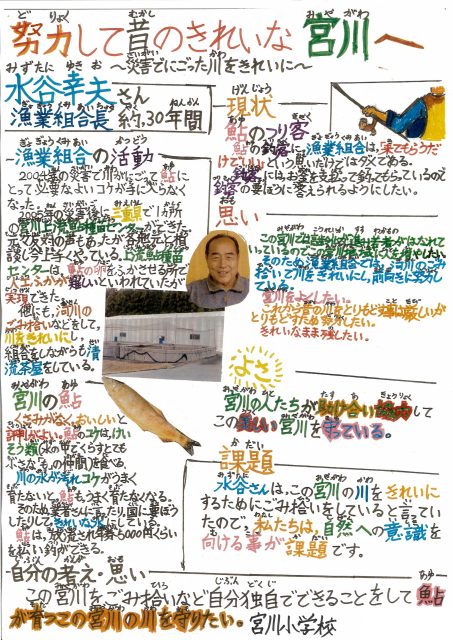 努力して昔のきれいな宮川へ
～災害でにごった川をきれいに～
みずたに ゆきお
水谷幸夫さん
漁業組合長 約30年間
漁業組合の活動
2004年の災害で川がにごって鮎に
とって必要なよいコケが手に入らなく
なった。
2005年の災害後に三重県で1カ所
の宮川上流鮎種苗センターができた。
談し今上手くやっている。上流鮎種苗
センターは、鮎の卵をふかさせる所で
難しいといわれていたが
実現できた。
他にも、河川の
ごみ拾いなどをして、
川をきれいにし、
組合をしながらも清
流茶屋をしている。
宮川の鮎
くさみがなく、おいしいと
評判がよい。鮎のコケは、けい
そう類(水の中でくらすとても
小さなもの仲間)を食べる。
川の水がきれいでコケがうまく
育たないと、鮎もうまく育たなくなる。
そのため業者さんに言ったり、国に要ぼう
したりして、きれいな水にしている。
鮎は、放流され年券6000円くらい
を払い釣ができる。
現状
鮎のつり客
鮎の釣客に、漁業組合は、「来てもらうだ
けでいい」という思いだけではダメである。
釣客には、お金を支払って釣ってもらっているので
釣客の要ぼうに答えられるようにしたい。
思い
そのため漁業組合では、河川のごみ
拾いで川をきれいにし、前向きに努力し
ている。
宮川をよくしたい。
これから昔の川をとりもどす事は厳しいが
とりもどすため努力したい。
きれいなまま残したい。
よさ
宮川の人たちが助け合い協力して
この美しい宮川を守っている。
課題
水谷さんは、この宮川の川をきれいに
するためにごみ拾いをしていると言ってい
たので、私たちは、自然への意識を
向ける事が課題です。
自分の考え・思い
この宮川をごみ拾いなど自分独自でできることをして鮎
が育つこの宮川の川を守りたい。宮川小学校